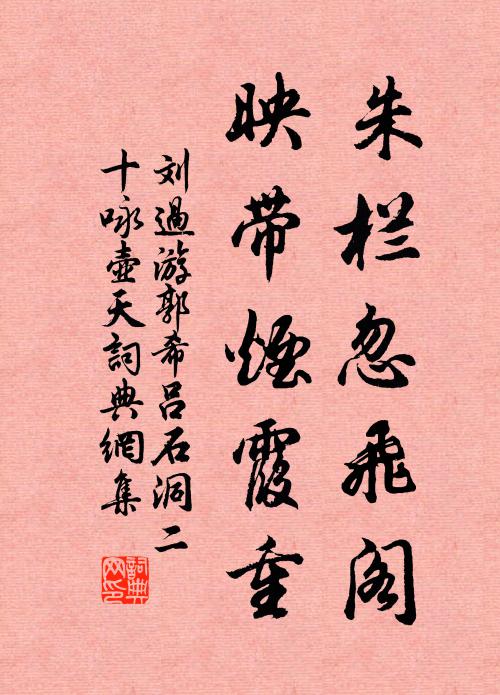 朱栏忽飛阁
映带煙霞重
刘過游郭希吕石洞二
十咏壶天詞典網集
詞典網印